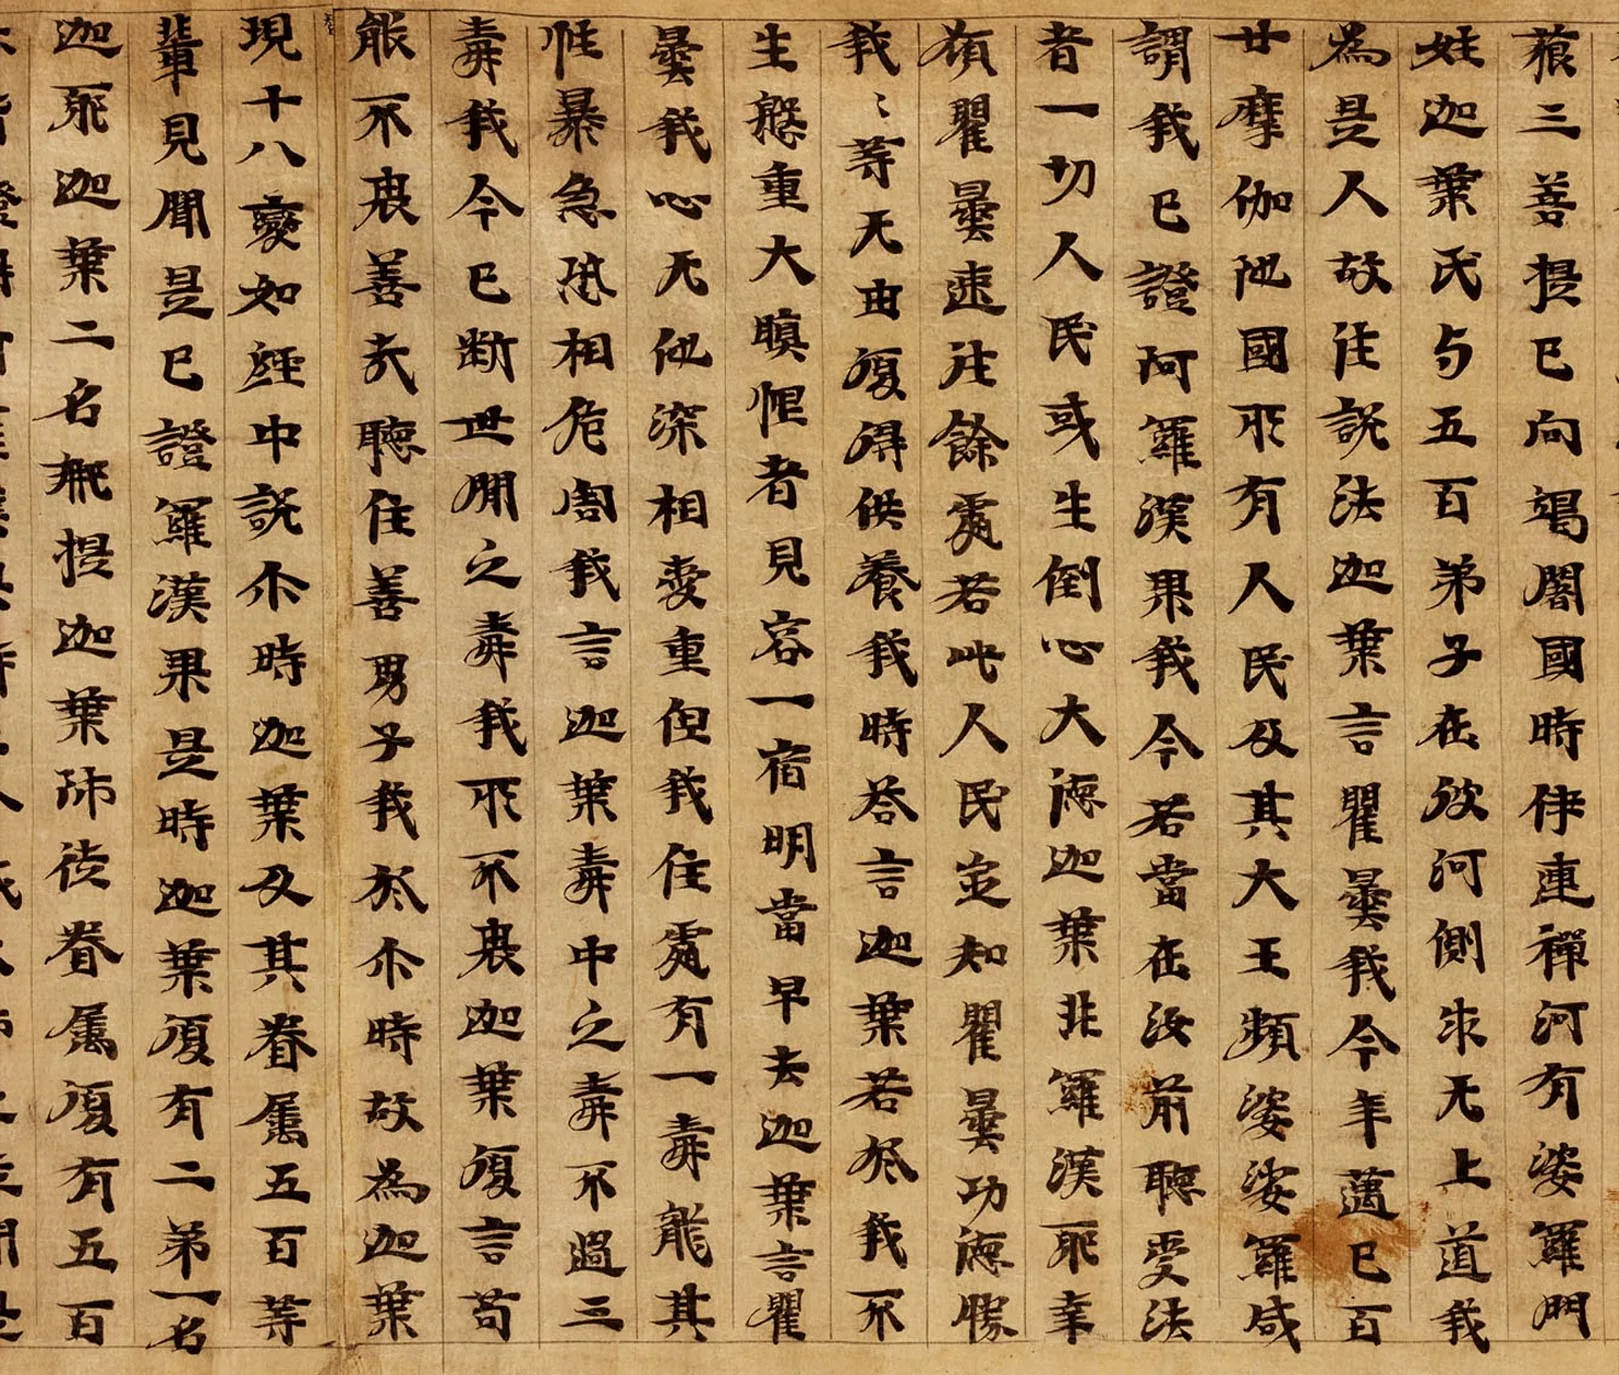 藐三菩提已向竭闍國時伊連禪河有婆羅門
姓迦葉氏与五百弟子在彼河側求无上道我
為是人故往説法迦葉言瞿曇我今年邁已百
廿摩伽陁國所有人民及其大王頻婆娑羅咸
謂我已證阿羅漢果我今若當在汝前聽受法
者一切人民或生倒心大德迦葉非羅漢耶幸
願瞿曇速往餘處若此人民定知瞿曇功德勝
我〻等无由復得供養我時荅言迦葉若於我不
生慇重大瞋恨者見容一宿明當早去迦葉言瞿
曇我心无他深相愛重但我住處有一毒龍其
性暴急恐相危害我言迦葉毒中之毒不過三
毒我今已斷世間之毒我所不畏迦葉復言苟
能不畏善哉聽住善男子我於尒時故為迦葉
現十八變如經中説尒時迦葉及其眷属五百等
輩見聞是已證羅漢果是時迦葉復有二弟一名
迦耶迦葉二名那提迦葉師徒眷属復有五百